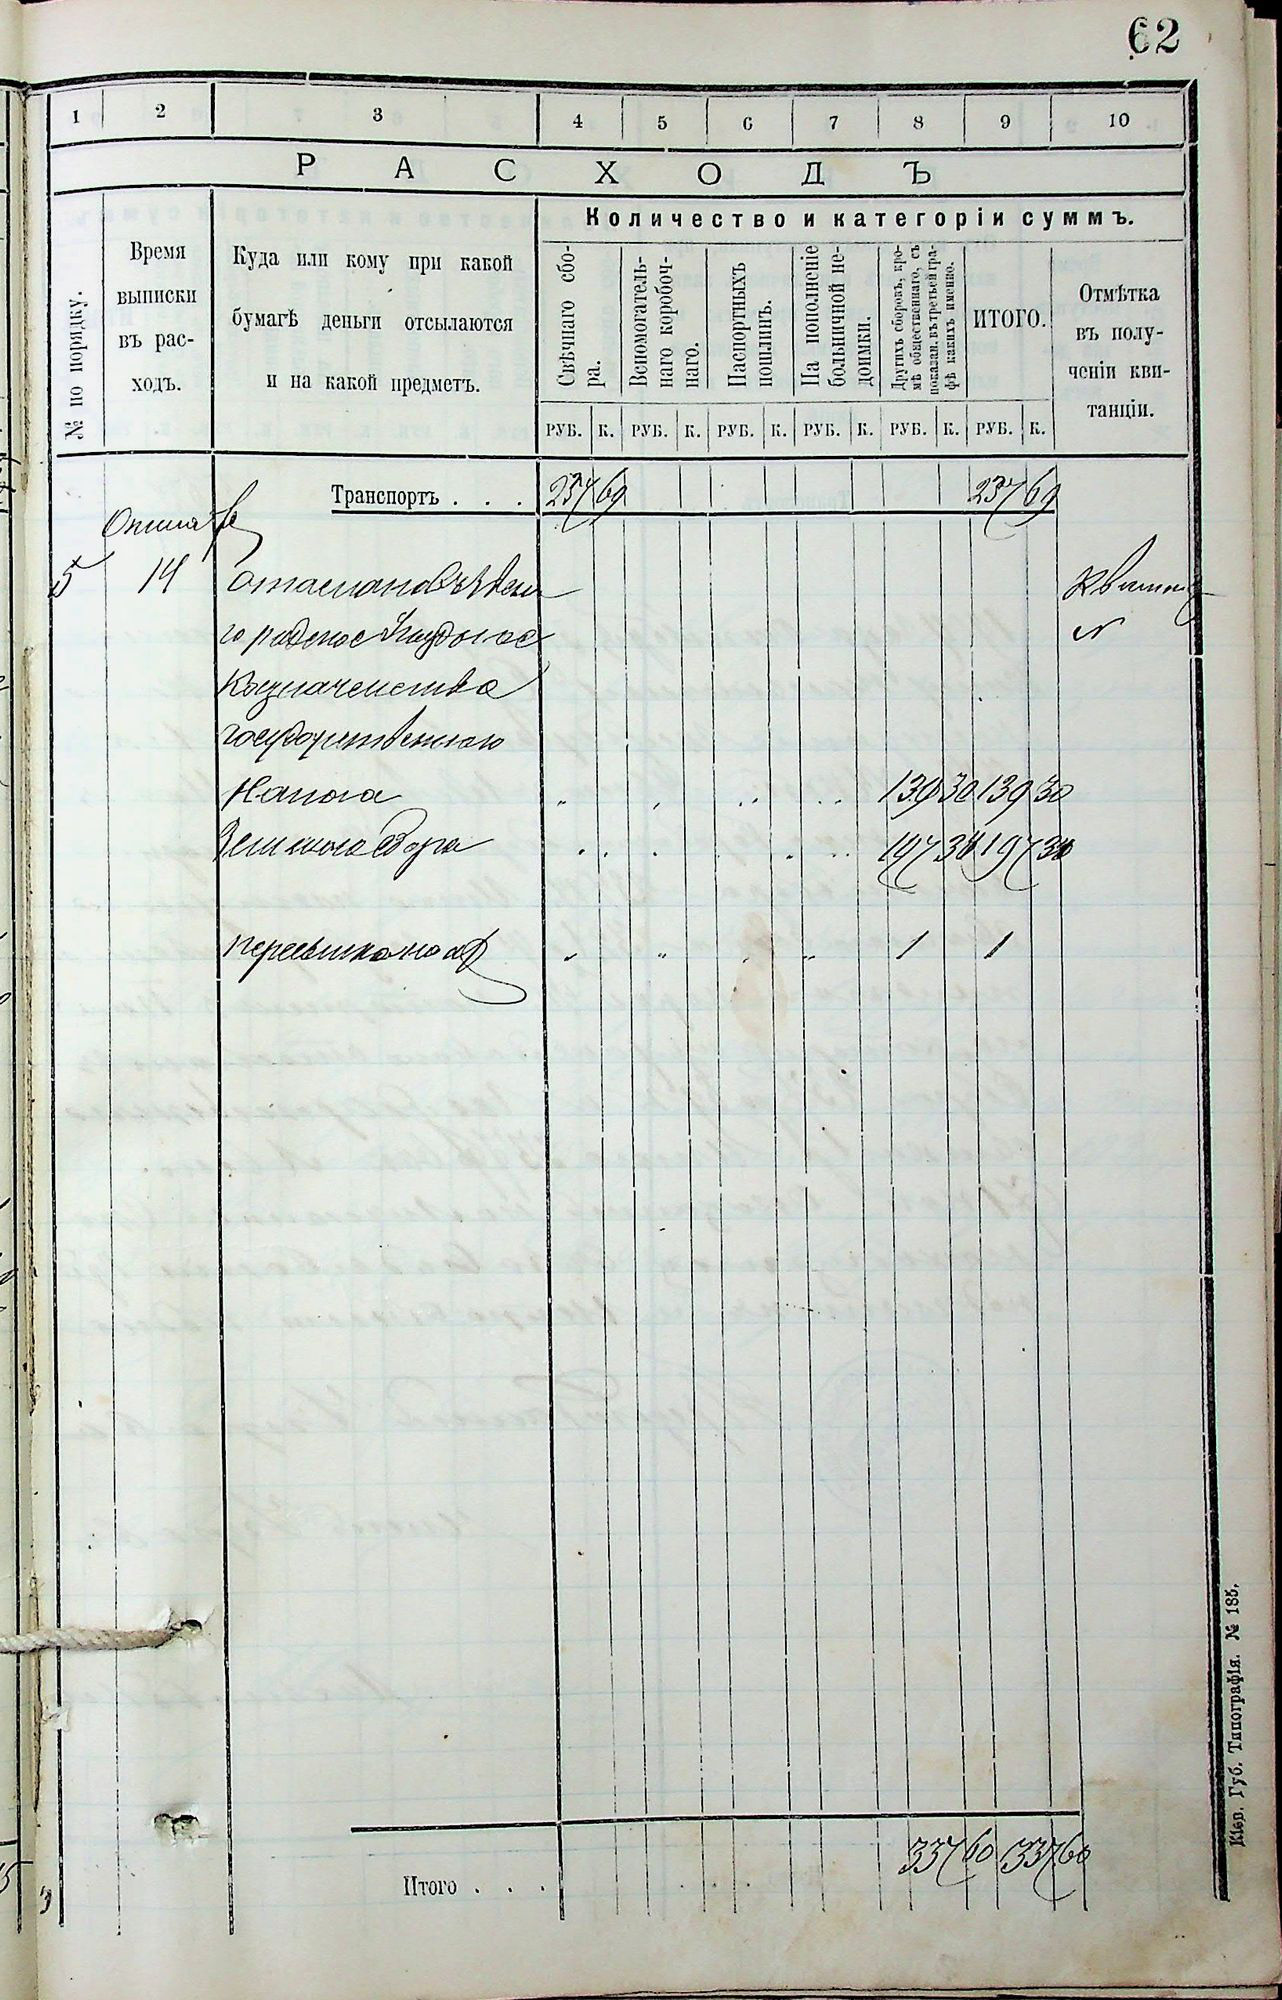 62
1 2 3 4 5 6 7 8 9 10
РАСХОДЪ
№ по порядку.
Время
выписки
въ рас-
ходъ.
Куда или кому при какой
бумагѣ деньги отсылаются
и на какой предметъ.
Количество и категоріи суммъ.
Свѣчнаго сбо-
ра.
Вспомогатель-
наго коробоч-
наго.
Паспортныхъ
пошлинъ.
На пополненіе
больничной не-
доимки.
Другихъ сборовъ, кро-
мѣ общественнаго, съ
показан. въ третьей гра-
фѣ какихъ именно.
ИТОГО.
Отмѣтка
въ полу-
ченіи кви-
танціи.
РУБ. К. РУБ. К. РУБ. К. РУБ. К. РУБ. К. РУБ. К.
Транспортъ . . . 237 69 237 69
5 14
№
Казначейства
государственнаго
Налога 139 30 139 30
Земскаго сбора 197 30 197 30
1 1
Итого . . . 337 60 337 60
Кіев. Губ. Типографія. № 185.